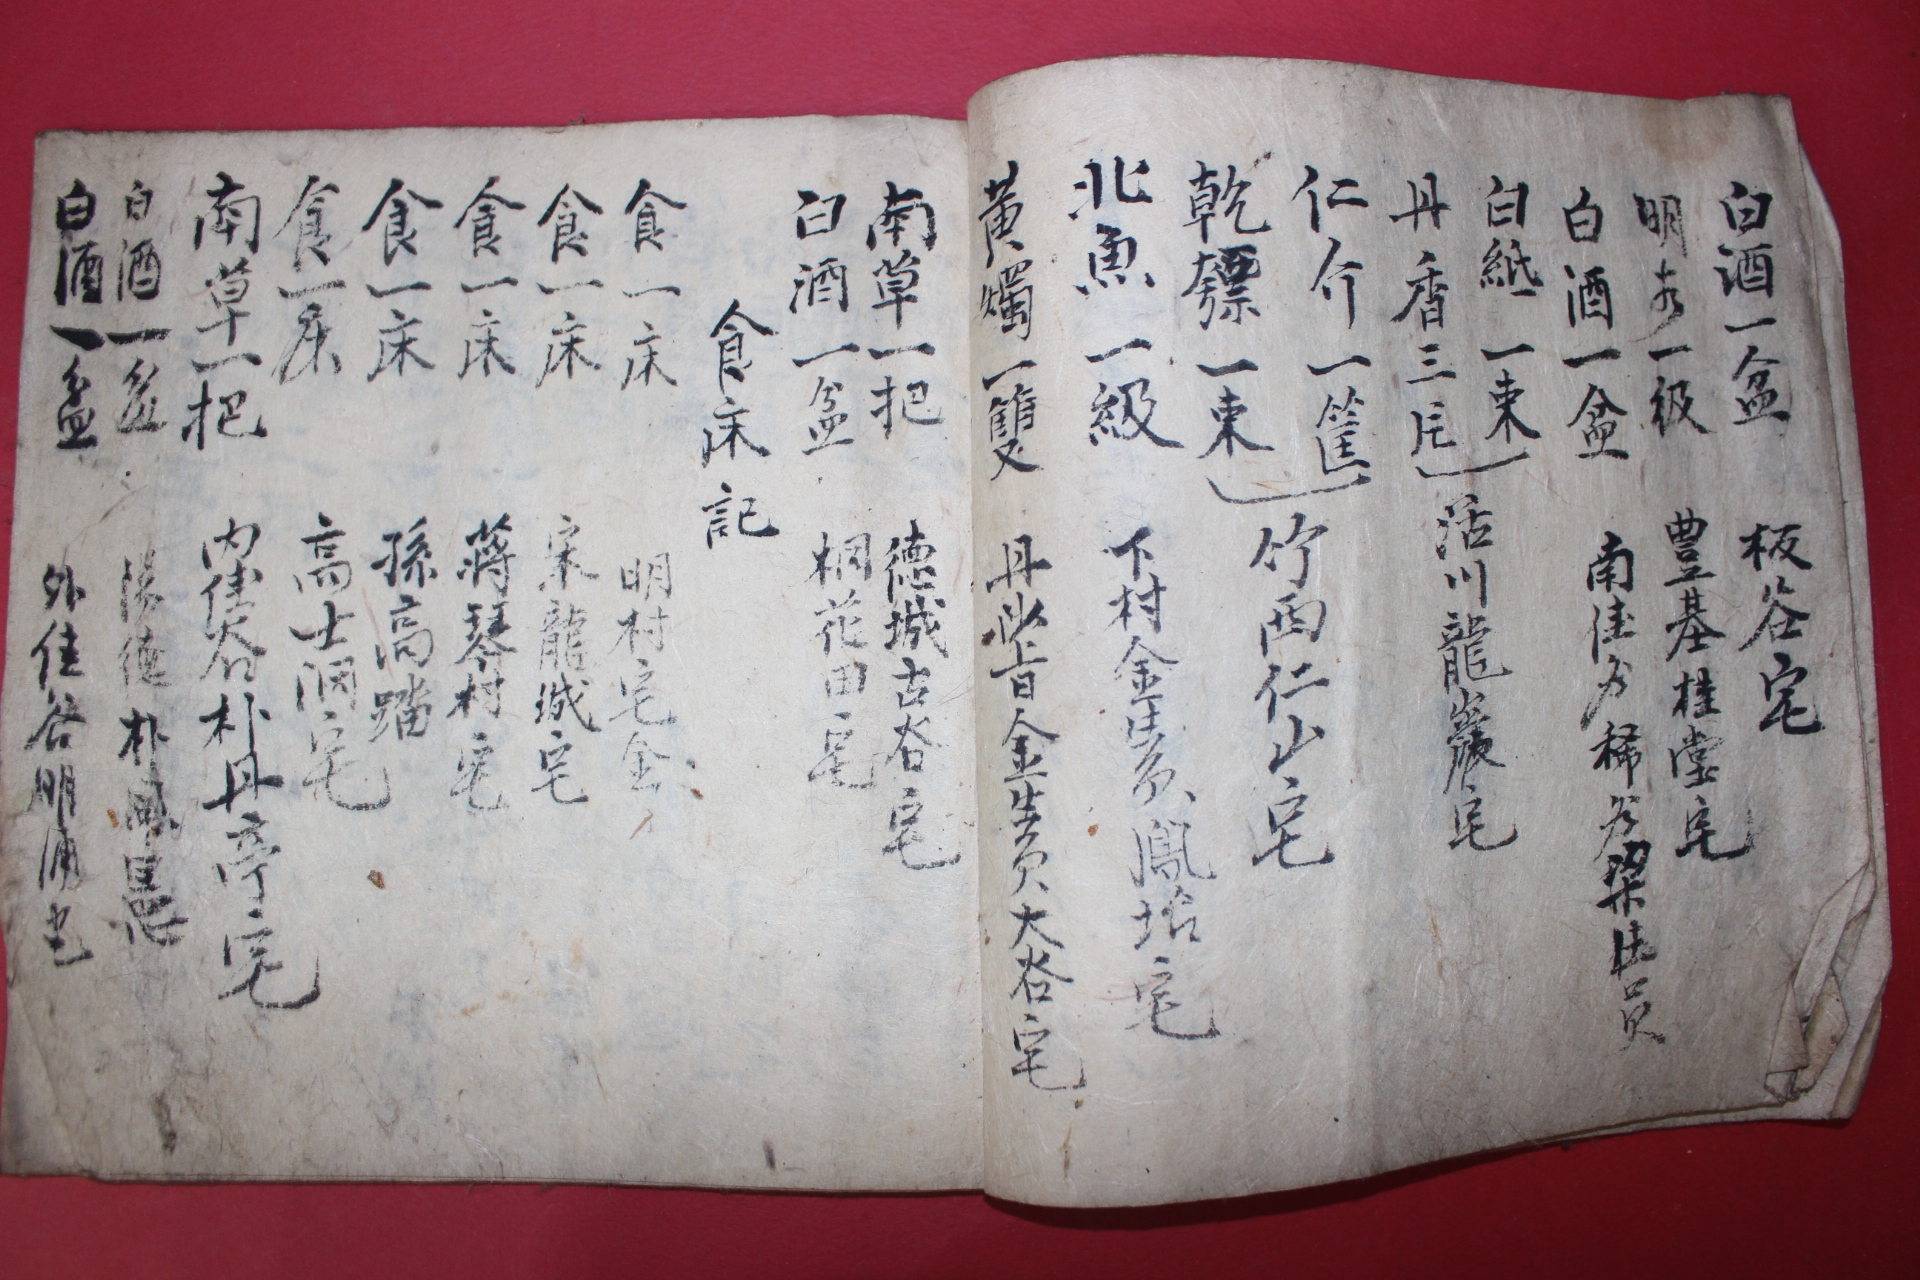 白酒一盆 板谷宅
明太一級 豊基桂堂宅
白酒一盆 南佳 稀 梁生員
白紙一束
丹香三片 活川龍巖宅
仁介一筐
乾鰾一束 竹西仁山宅
北魚一級 下村金生員鳳岩宅
黄燭一雙 丹 金生員大谷宅
南草一把 德城古谷宅
白酒一盆 桐花田宅
食床記
食一床 明村宅金
食一床 宋龍城宅
食一床 蒋琴村宅
食一床 孫高踏
食一床 高士洞宅
南草一把 内佳谷朴丹亭宅
白酒一盆 德朴鳳
白酒一盆 外佳谷明浦宅